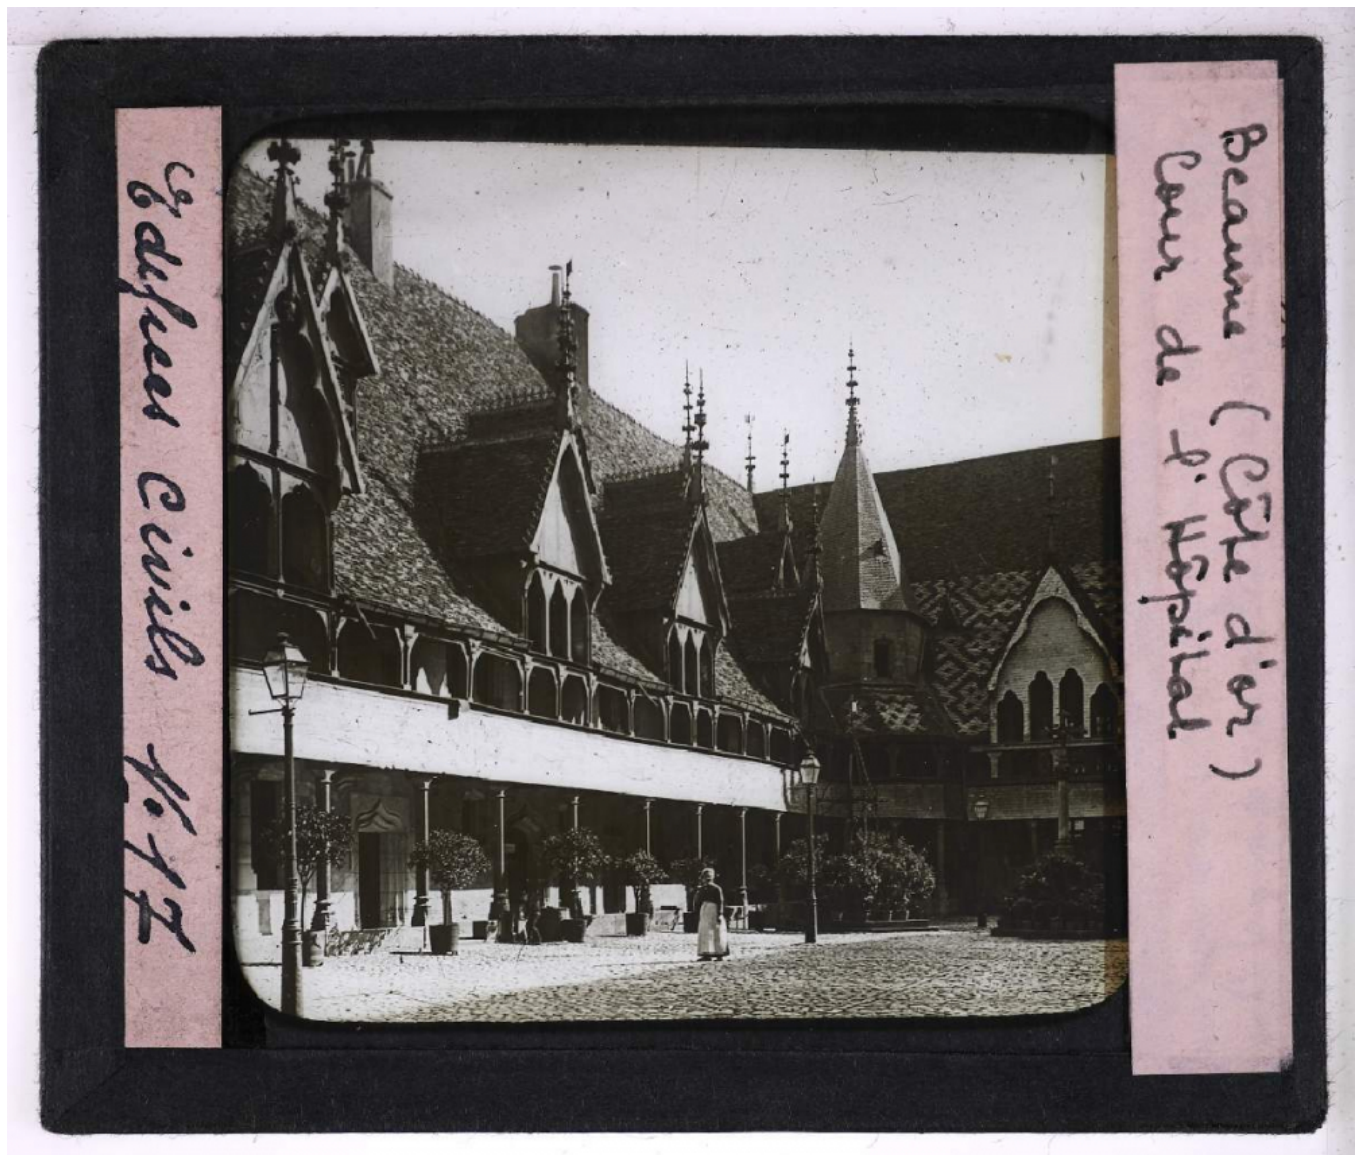 Edifices Civils No 17
Beaune (Côte d'or)
Cour de l'Hôpital